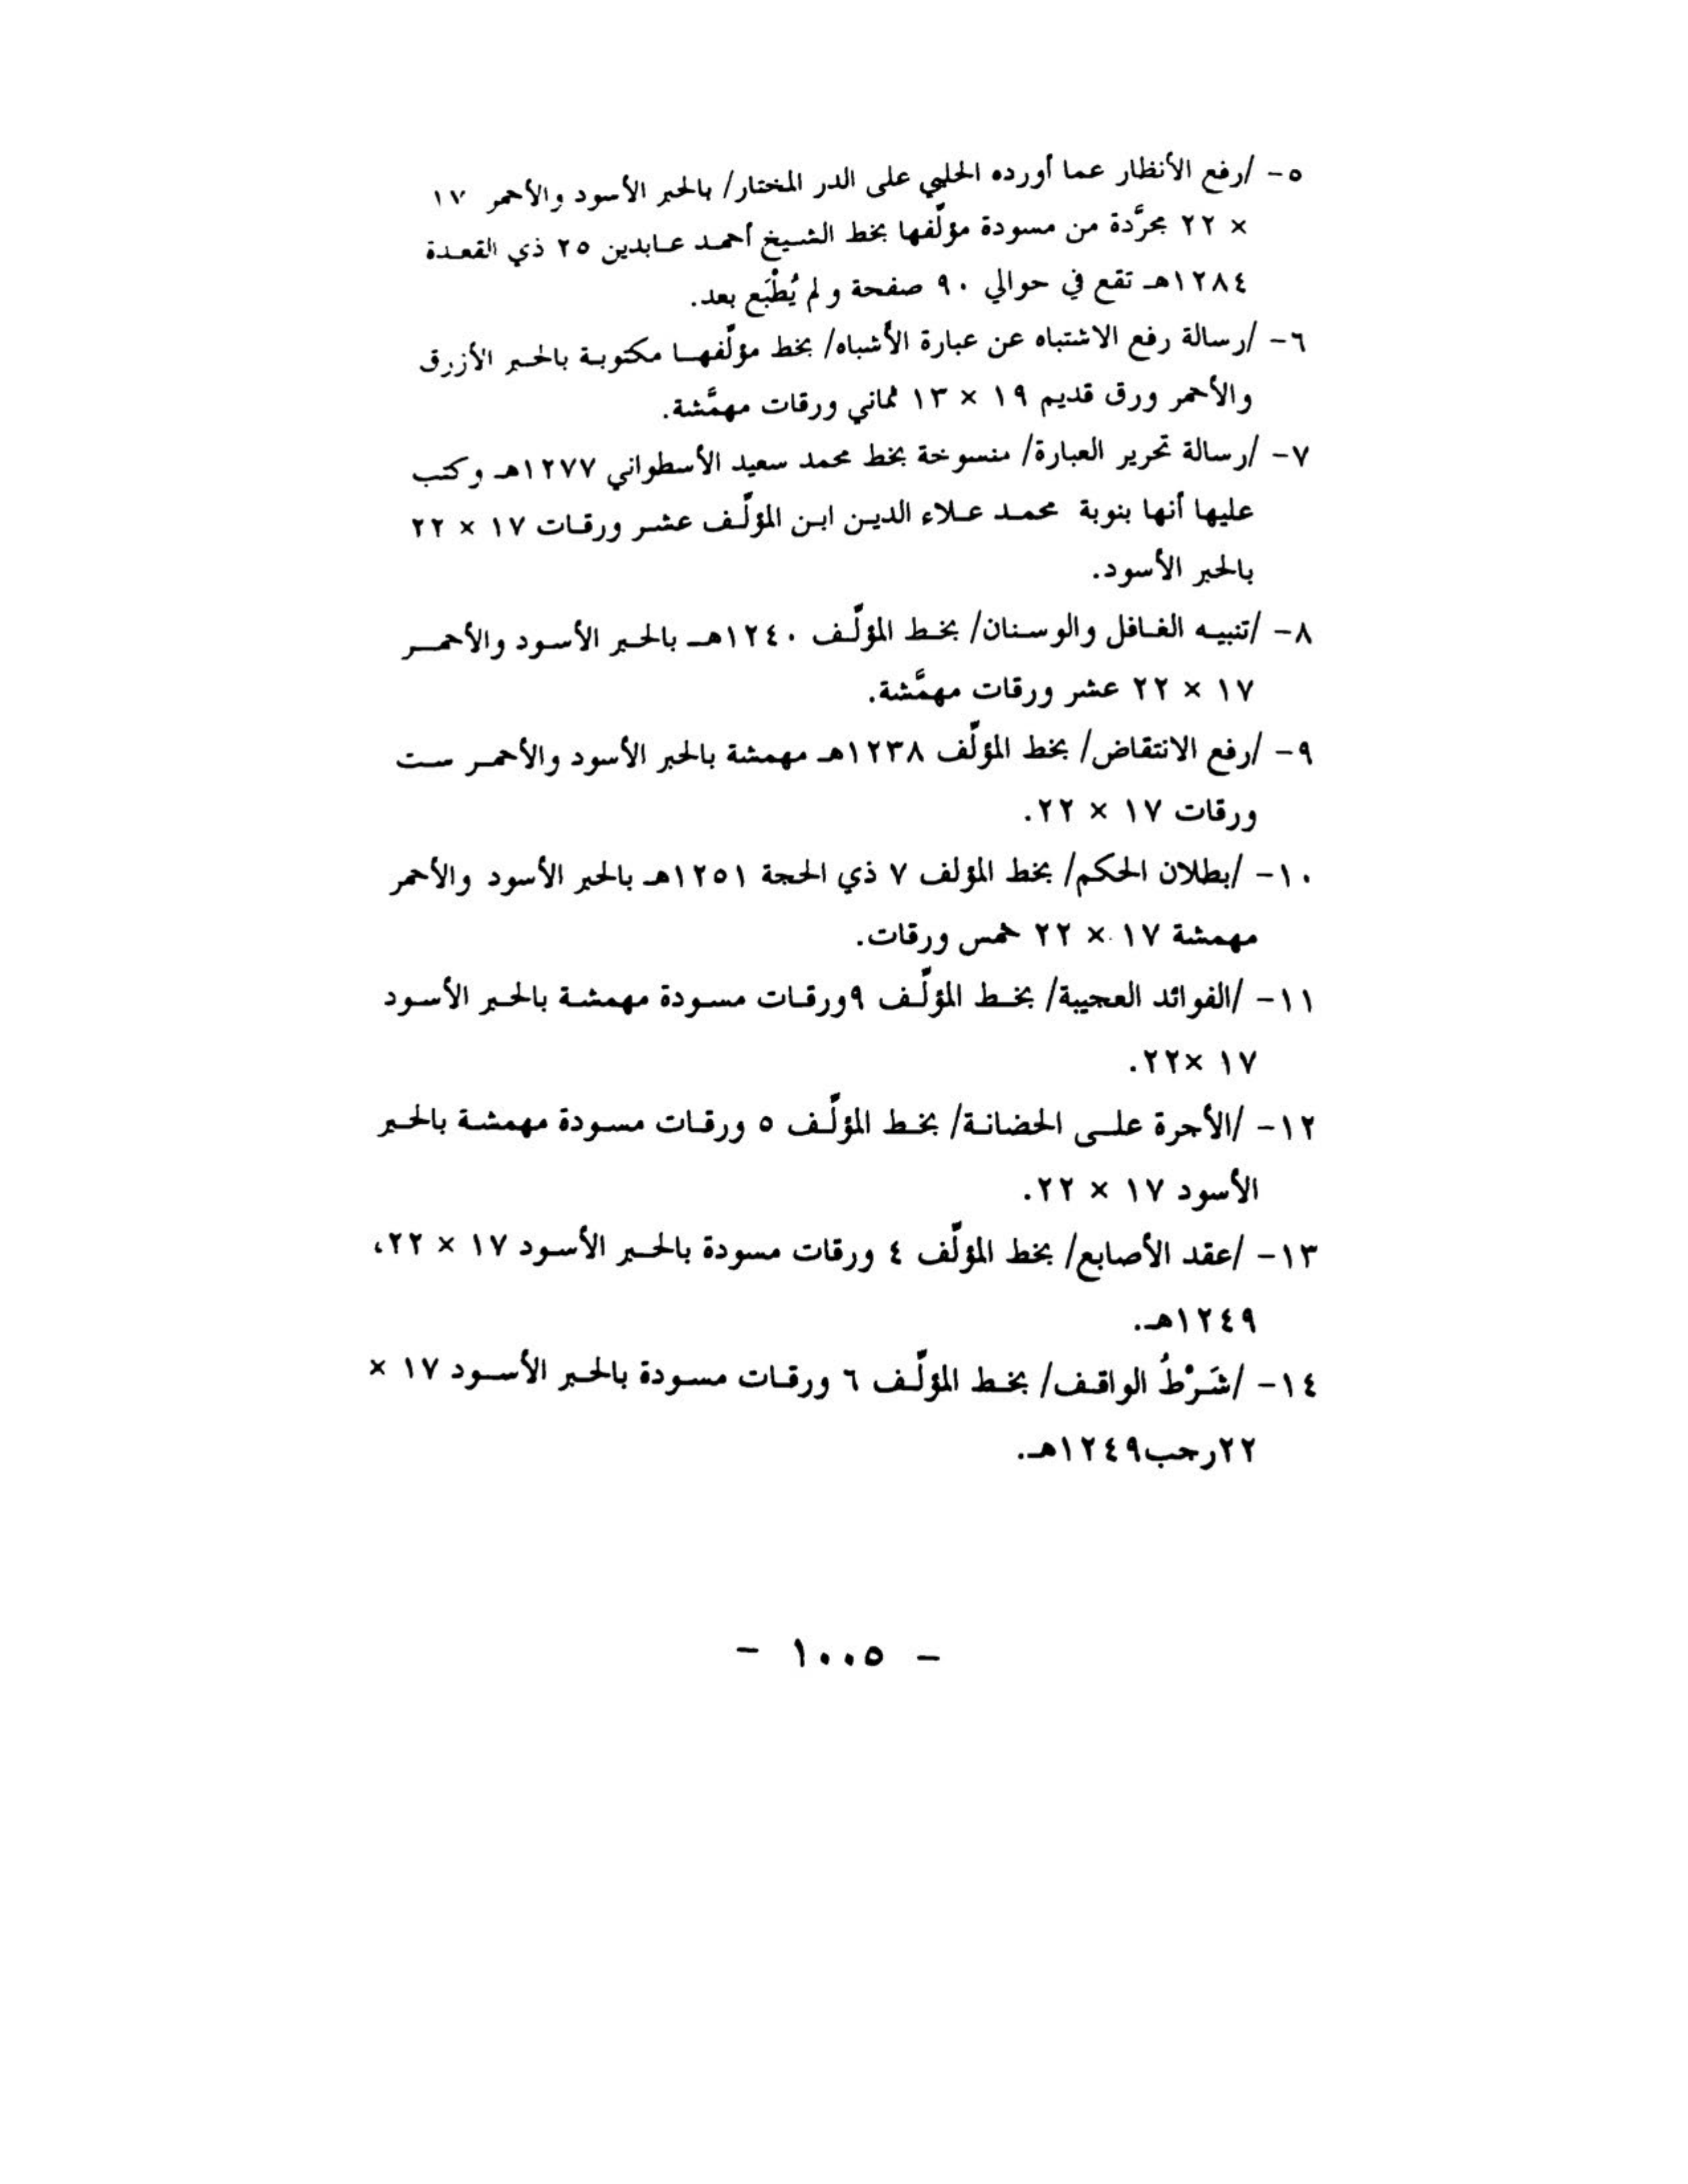 ٥- /رفع الأنظار عما أورده الحلبي على الدر المختار/ بالحبر الأسود والأحمر ١٧
× ٢٢ مجرَّدة من مسودة مؤلّفها بخط الشيخ أحمد عابدين ٢٥ ذي القعدة
١٢٨٤هـ تقع في حوالي ٩٠ صفحة و لم يُطْبَع بعد.
٦- /رسالة رفع الاشتباه عن عبارة الأشباه/ بخط مؤلّفها مكتوبة بالحبر الأزرق
والأحمر ورق قديم ١٩ × ١٣ ثماني ورقات مهمَّشة.
٧- /رسالة تحرير العبارة/ منسوخة بخط محمد سعيد الأسطواني ١٢٧٧هـ وكتب
عليها أنها بنوبة محمد علاء الدين ابن المؤلّف عشر ورقات ١٧ × ٢٢
بالحبر الأسود.
٨- /تنبيه الغافل والوسنان/ بخط المؤلّف ١٢٤٠هـ بالحبر الأسود والأحمر
١٧ × ٢٢ عشر ورقات مهمَّشة.
٩- /رفع الانتقاض/ بخط المؤلّف ١٢٣٨هـ مهمشة بالحبر الأسود والأحمر ست
ورقات ١٧ × ٢٢.
١٠- /بطلان الحكم/ بخط المؤلف ٧ ذي الحجة ١٢٥١هـ بالحبر الأسود والأحمر
مهمشة ١٧ × ٢٢ خمس ورقات.
١١- /الفوائد العجيبة/ بخط المؤلّف ٩ورقات مسودة مهمشة بالحبر الأسود
١٧ ×٢٢.
١٢- /الأجرة على الحضانة/ بخط المؤلّف ٥ ورقات مسودة مهمشة بالحبر
الأسود ١٧ × ٢٢.
١٣- /عقد الأصابع/ بخط المؤلّف ٤ ورقات مسودة بالحبر الأسود ١٧ × ٢٢،
١٢٤٩هـ.
١٤- /شَرْطُ الواقف/ بخط المؤلّف ٦ ورقات مسودة بالحبر الأسود ١٧ ×
٢٢رجب١٢٤٩هـ.
- ١٠٠٥ -